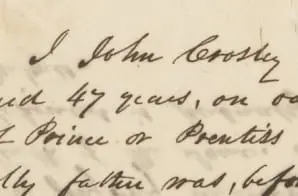 I John Crosley
ed 47 years, on oa
Prince or Prentiss
lly father was, befo